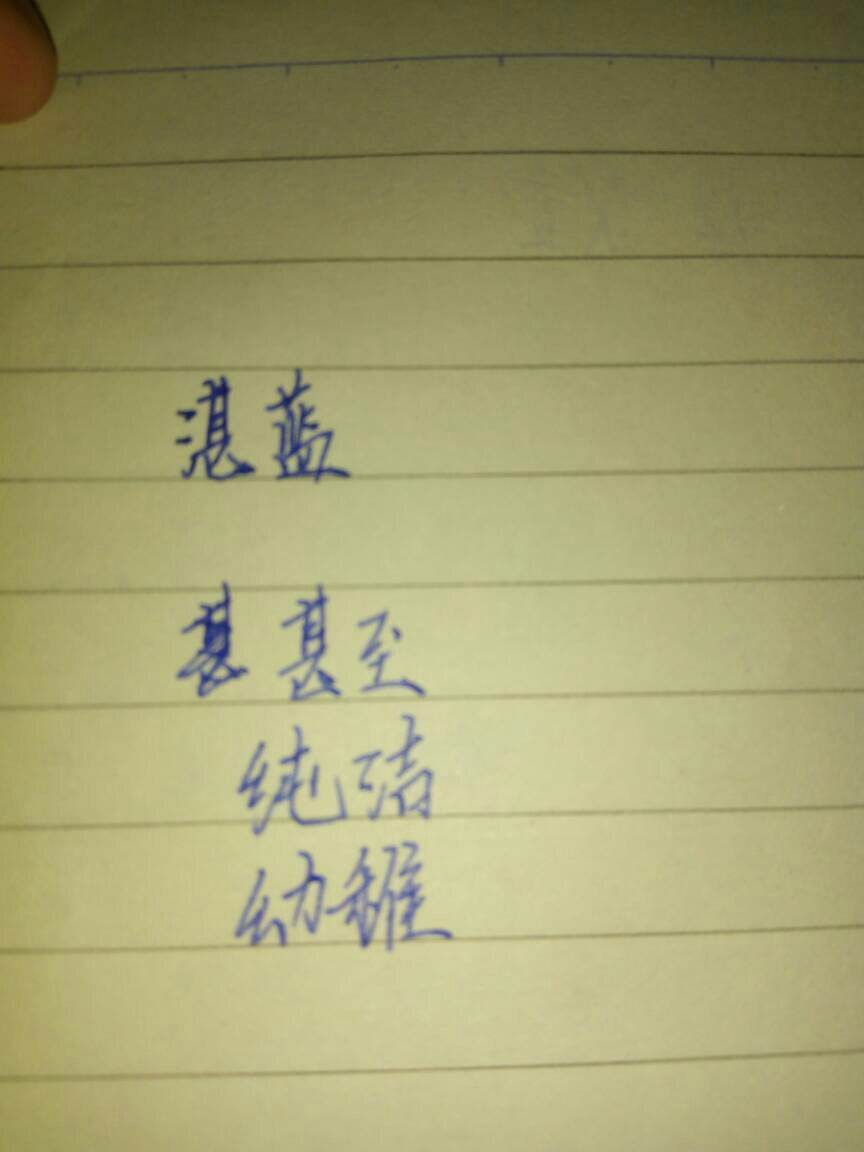 湛蓝
甚 甚至
纯洁
幼稚